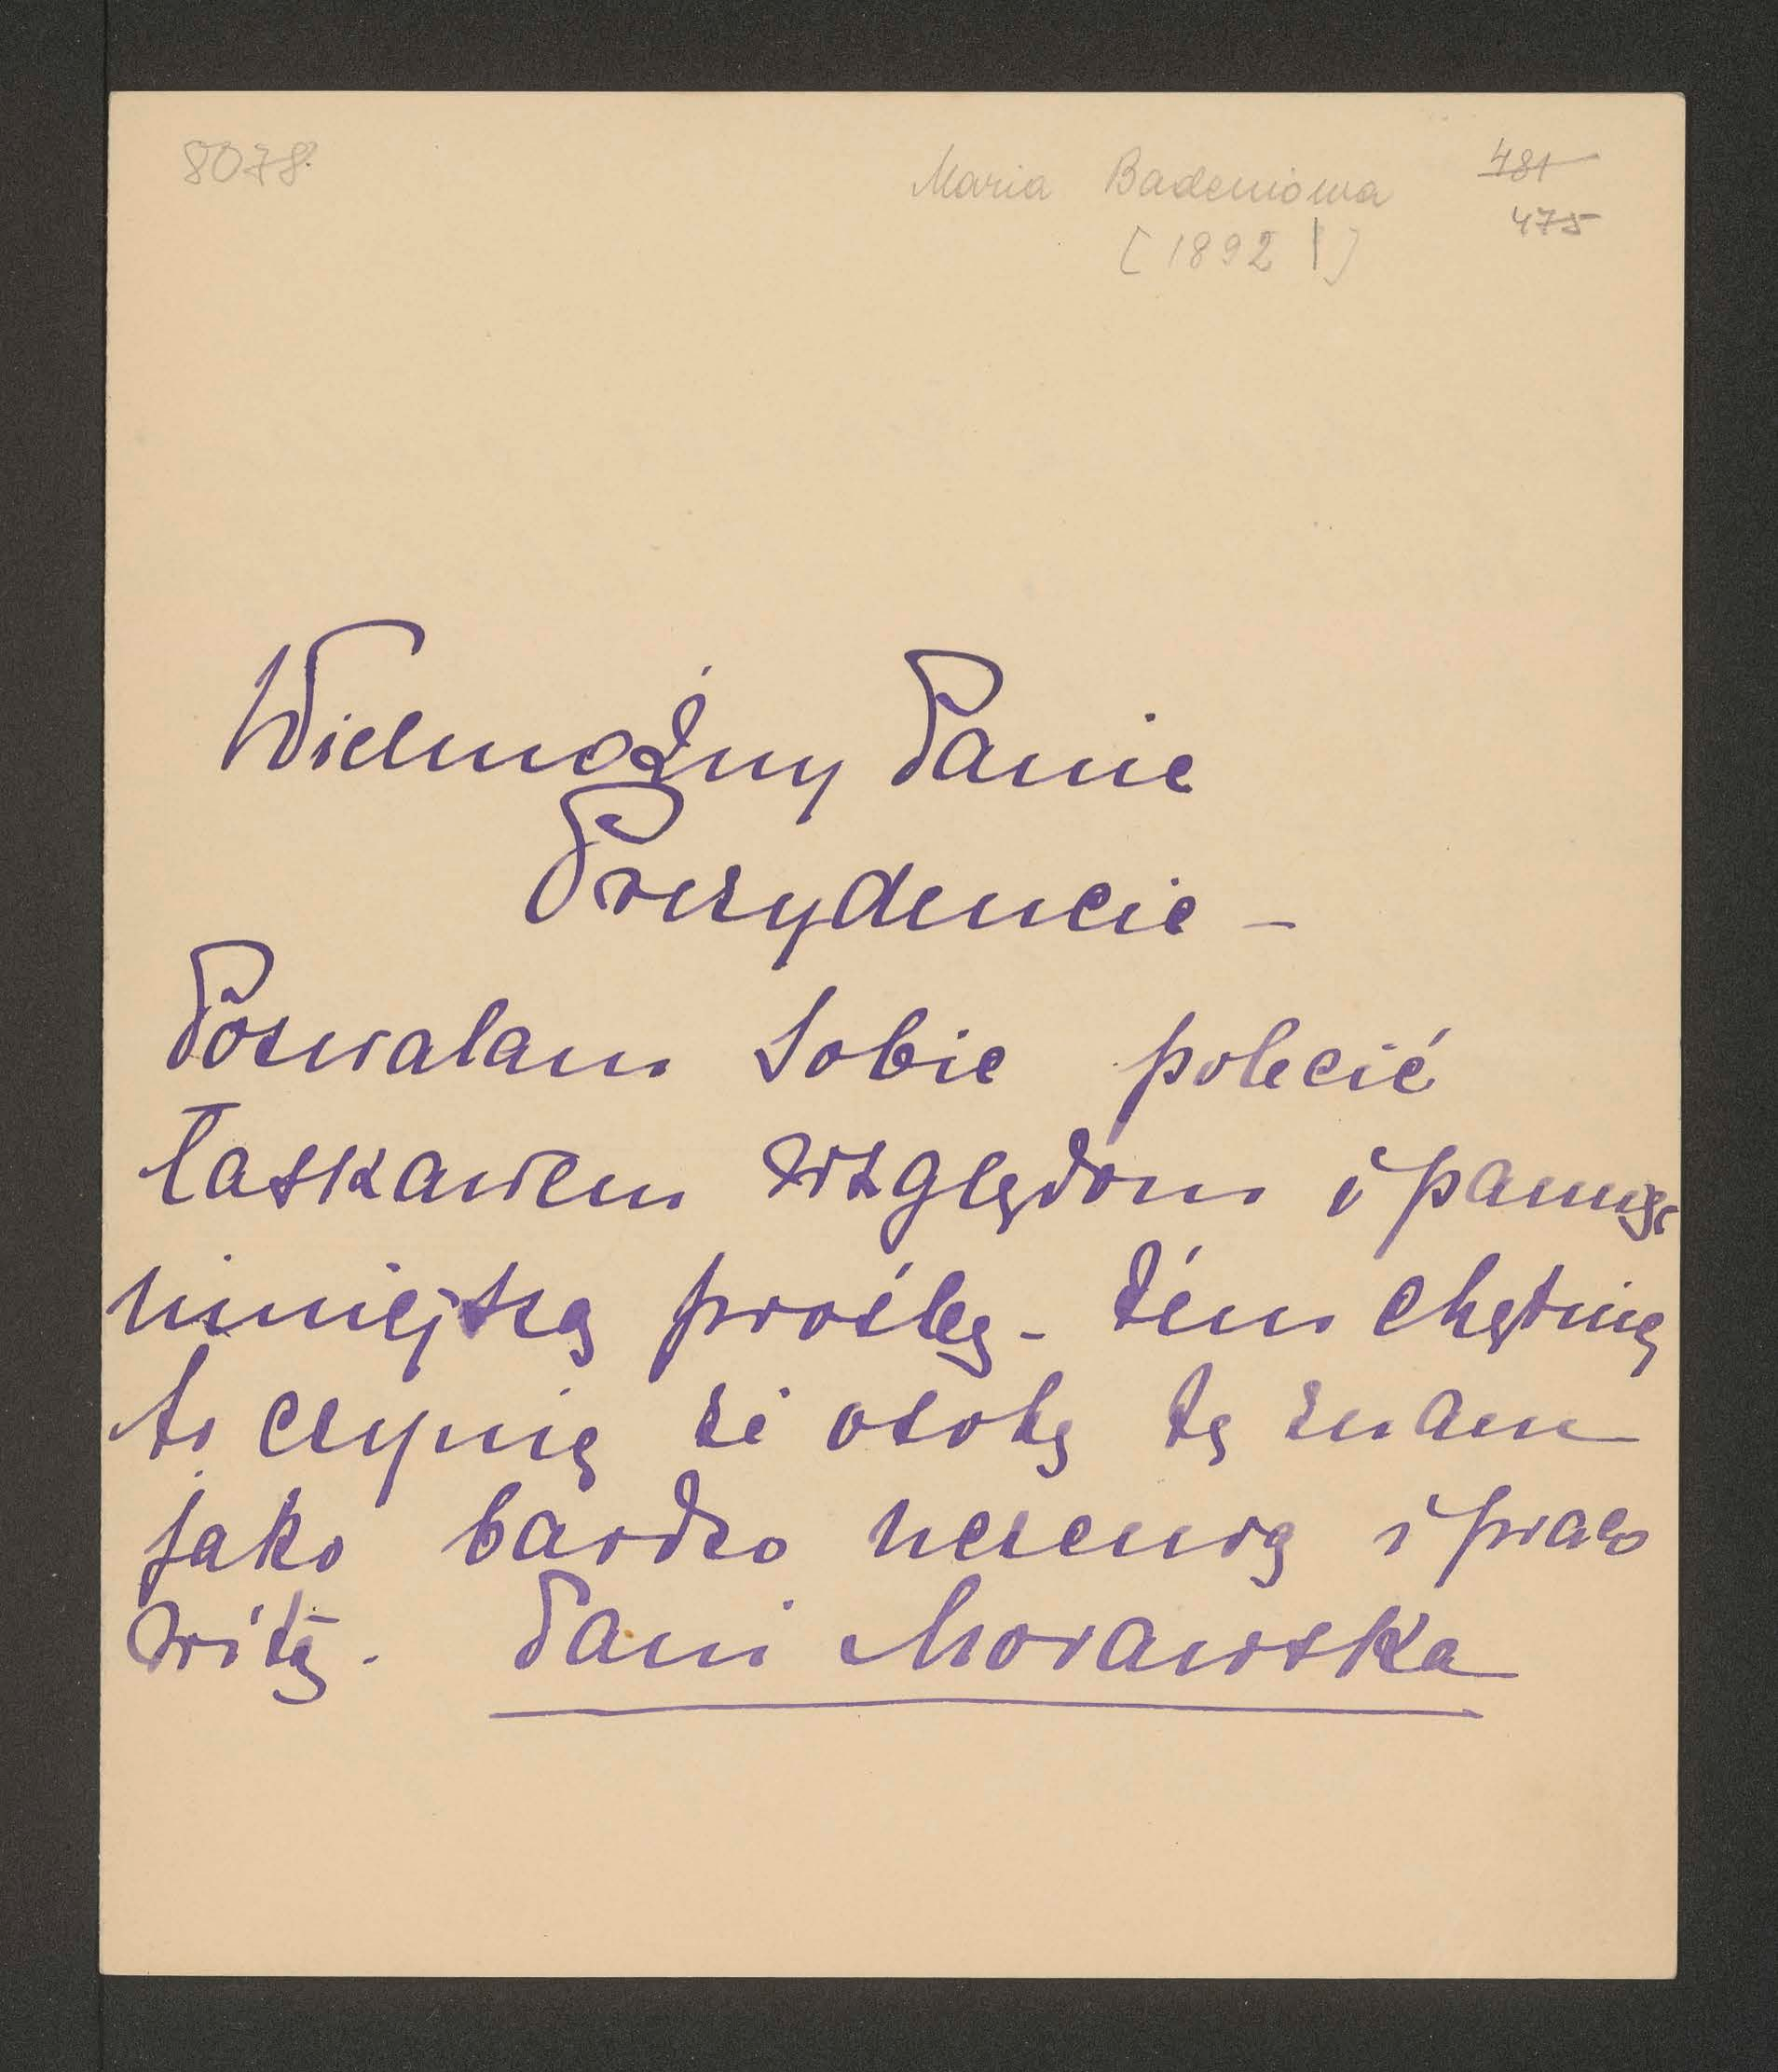 8078.
Maria Badeniowa
[1892 |]
481
475
Wielmożny Panie
Prezydencie –
Pozwalam sobie polecić
łaskawem względom i pamięci
niniejszą prośbę – tém chętnię
to czynię że osobę tę znam
jako bardzo uczciwą i praco
witą. Pani Morawska